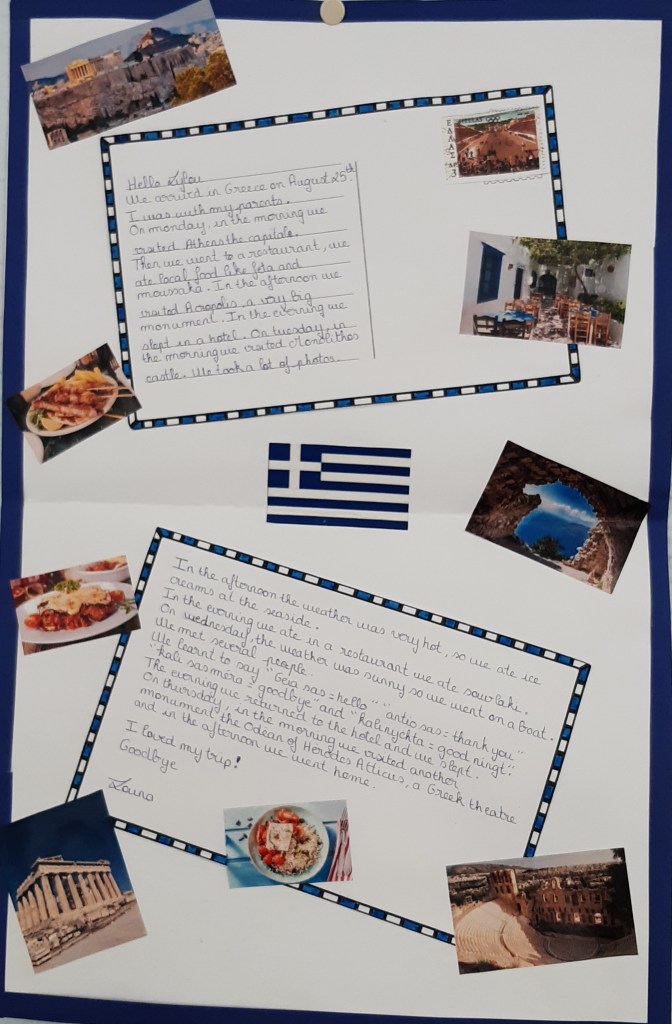 Hello Lylou
We arrived in Greece on August 25th.
I was with my parents.
On monday, in the morning we
visited Athens the capitale.
Then we went to a restaurant, we
ate local food like feta and
moussaka. In the afternoon we
visited Acropolis, a very big
monument. In the evening we
slept in a hotel. On tuesday, in
the morning we visited Monolithos
castle. We took a lot of photos.
ΕΛΛΑΣ
In the afternoon the weather was very hot, so we ate ice
creams at the seaside.
In the evening we ate in a restaurant we ate souvlaki.
On wednesday, the weather was sunny so we went on a boat.
We met several people.
We learnt to say "Geia sas = hello" "antio sas = thank you"
"kali sas méra = goodbye" and "kalinychta = good ningt".
The evening we returned to the hotel and we slept.
On thursday, in the morning we visited another
monument the Odéan of Hérodes Atticus, a Greek theatre
and in the afternoon we went home.
I loved my trip!
Goodbye
Louna